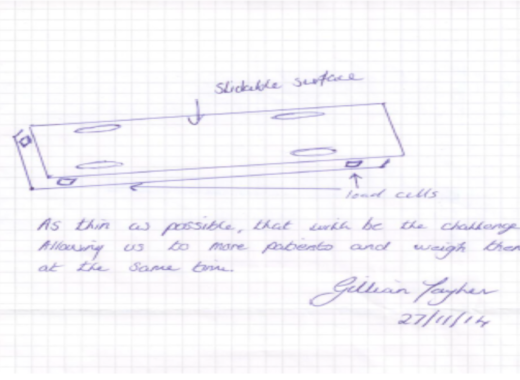 Slidable surface
load cells
As thin as possible, that will be the challenge
Allowing us to move patients and weigh them
at the same time.
Gillian Taylor
27/11/14